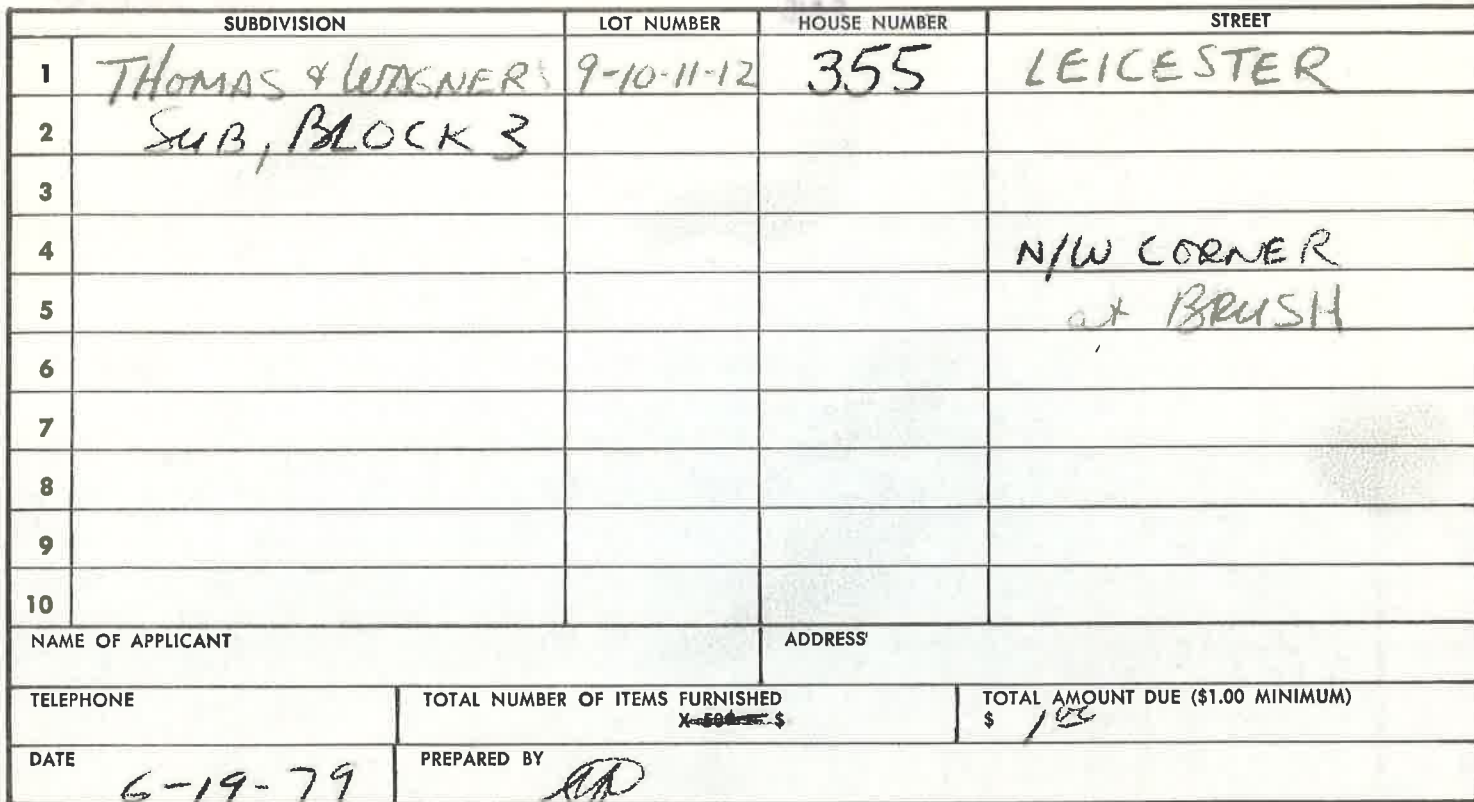 SUBDIVISION LOT NUMBER HOUSE NUMBER STREET
1 THOMAS & WAGNERS 9-10-11-12 355 LEICESTER
2 SUB, BLOCK 3
3
4 N/W CORNER
5 at BRUSH
6
7
8
9
10
NAME OF APPLICANT ADDRESS
TELEPHONE TOTAL NUMBER OF ITEMS FURNISHED TOTAL AMOUNT DUE ($1.00 MINIMUM)
X 50¢ $ $ 1 00
DATE PREPARED BY
6-19-79